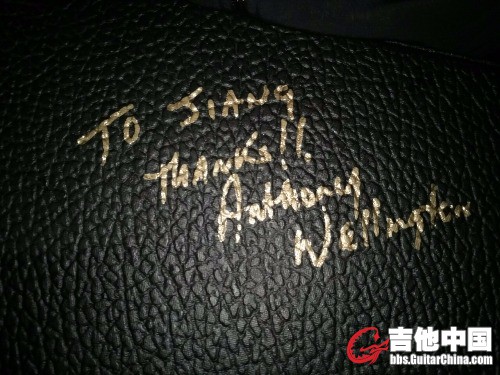 TO JIANG
THANKS!!
Anthony
Wellington
吉他中国
bbs.GuitarChina.com